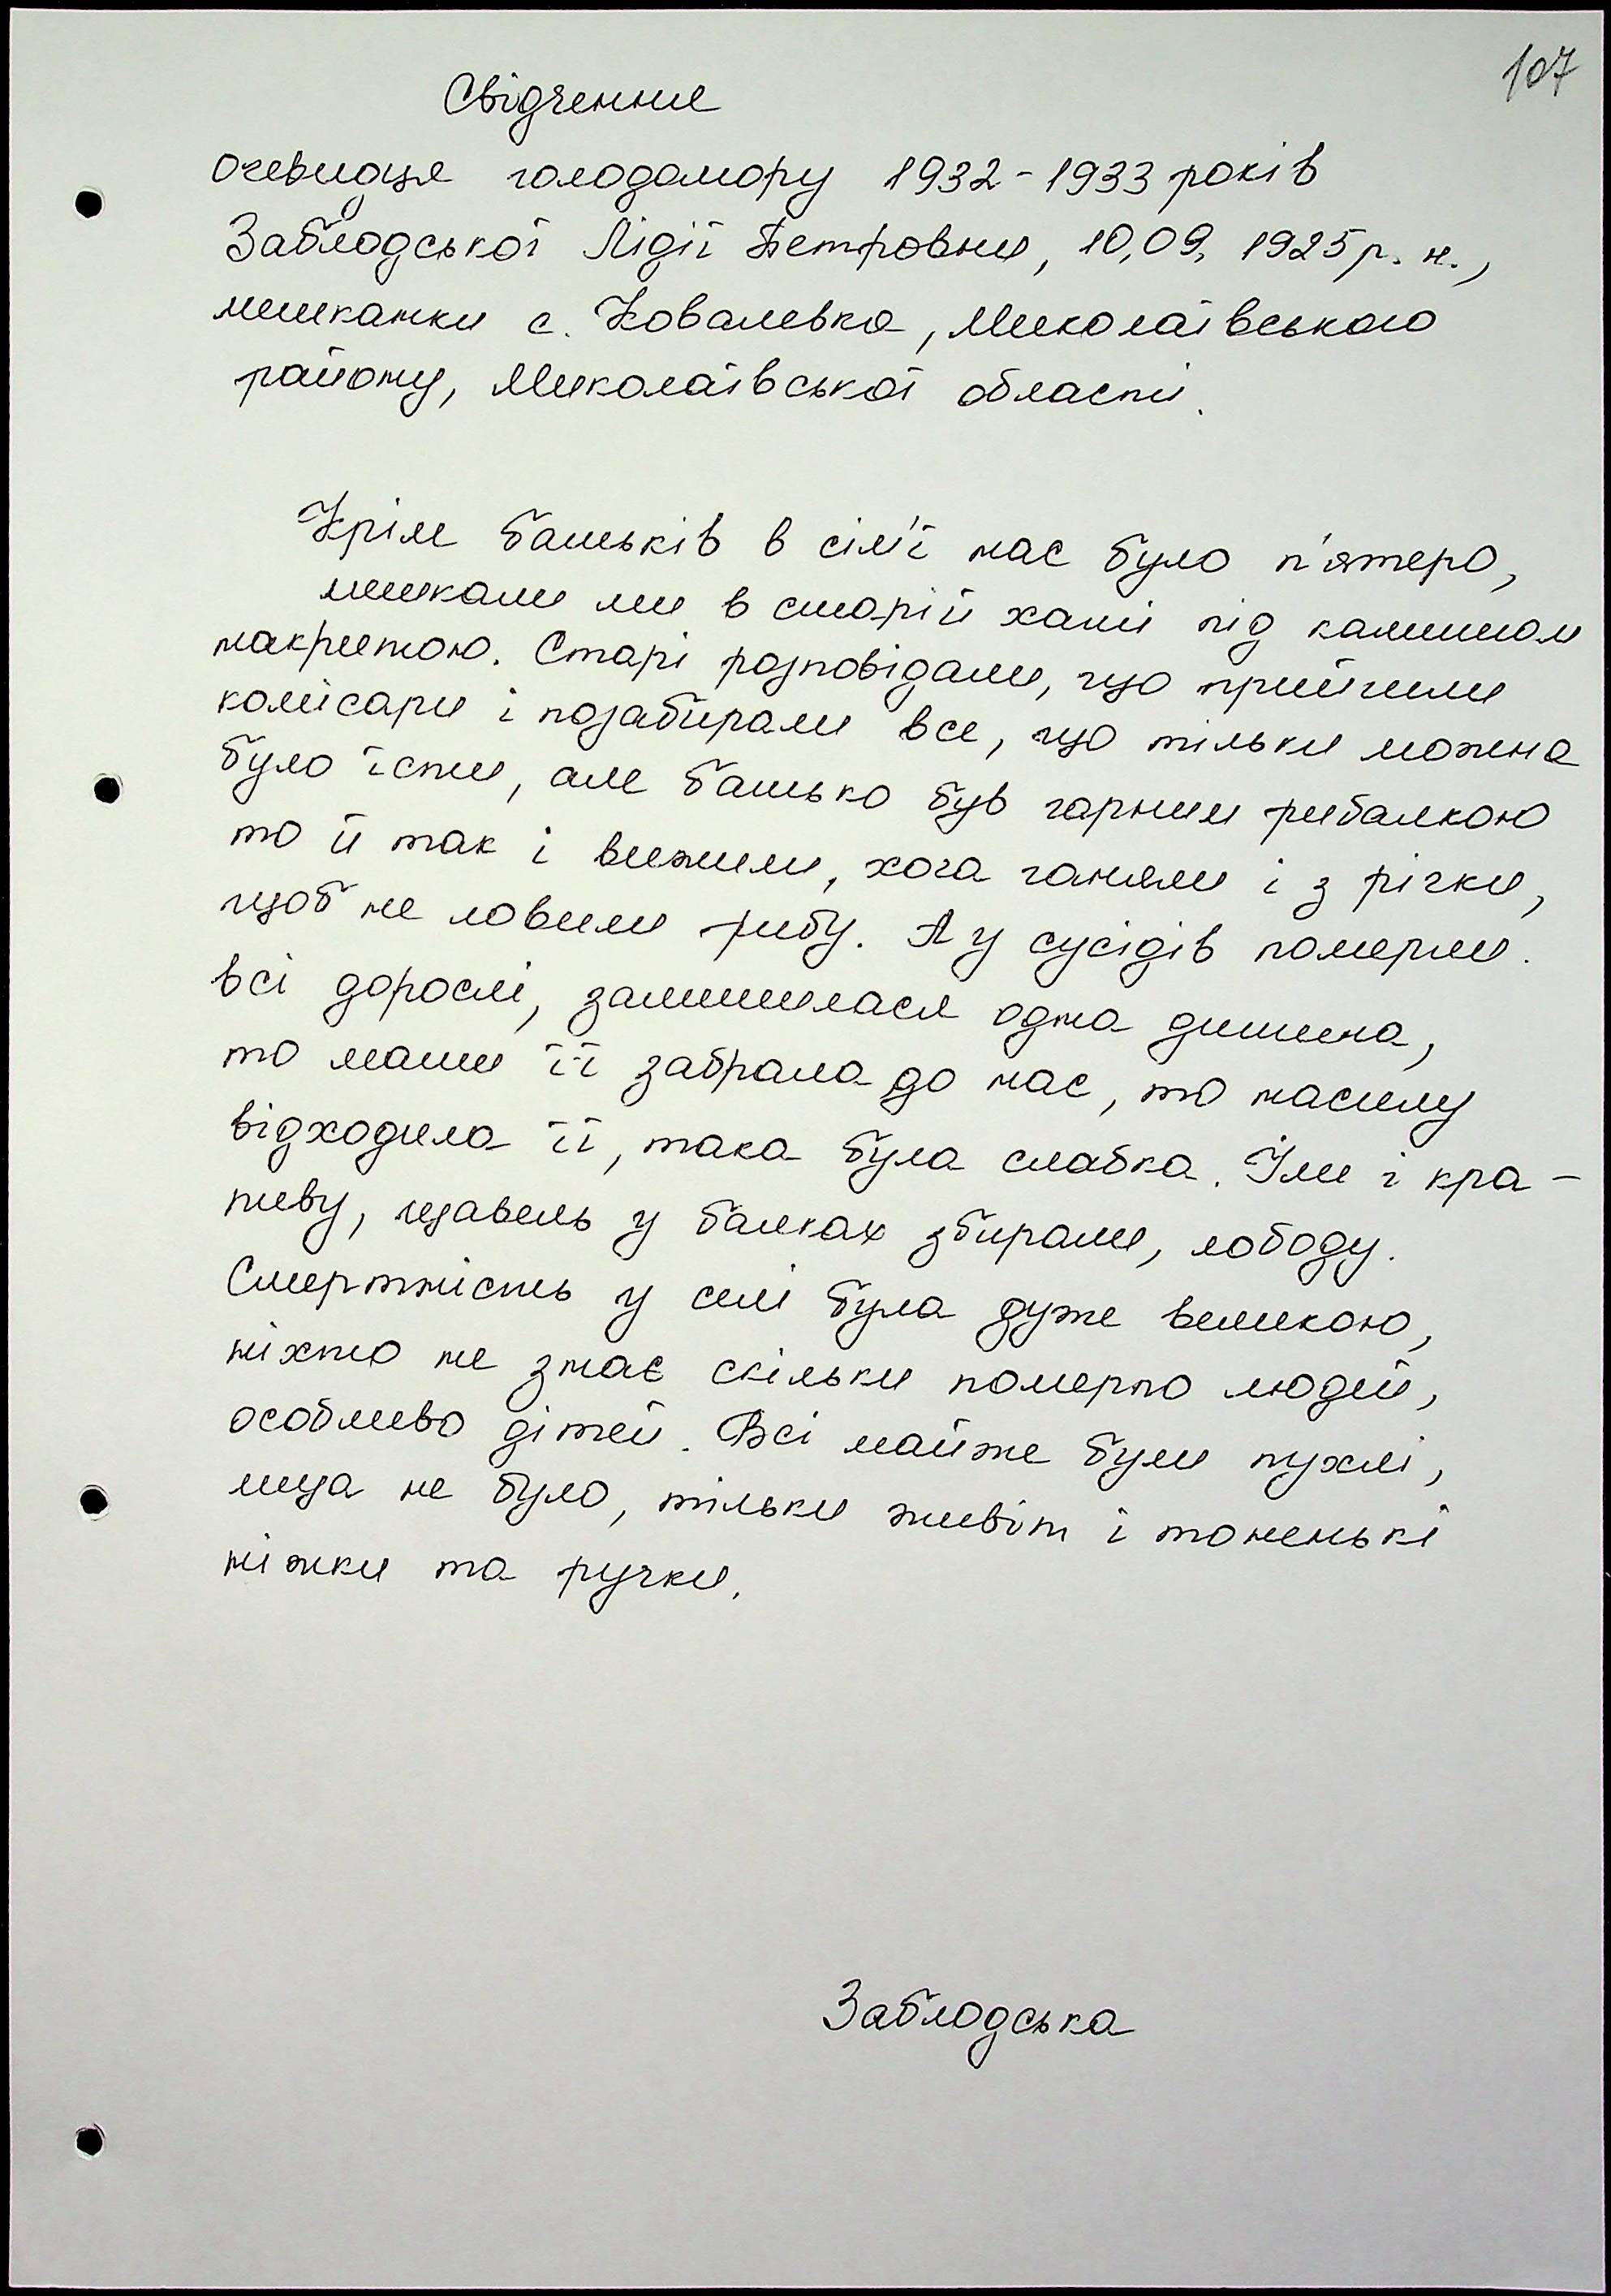 107
Свідчення
очевидця голодомору 1932-1933 років
Заблодської Лідії Петровни, 10,09, 1925 р. н.,
мешканки с. Ковалевка, Миколаївського
району, Миколаївської области.
Крім батьків в сім'ї нас було п'ятеро,
мешкали ми в старій хаті під камишом
накритою. Старі розповідали, що прийшли
комісари і позабирали все, що тільки можна
було їсти, але батько був гарним рибалкою
то й так і вижили, хоча ганяли і з річки,
щоб не ловили рибу. А у сусідів померли.
всі дорослі, залишилася одна дитина,
то мати її забрала до нас, то насилу
відходила її, така була слабка. Їли і кра-
пиву, щавель у балках збирали, лободу.
Смертність у селі була дуже великою,
ніхто не знає скільки померло людей,
особливо дітей. Всі майже були пухлі,
лица не було, тільки живіт і тоненькі
ніжки та ручки.
Заблодська